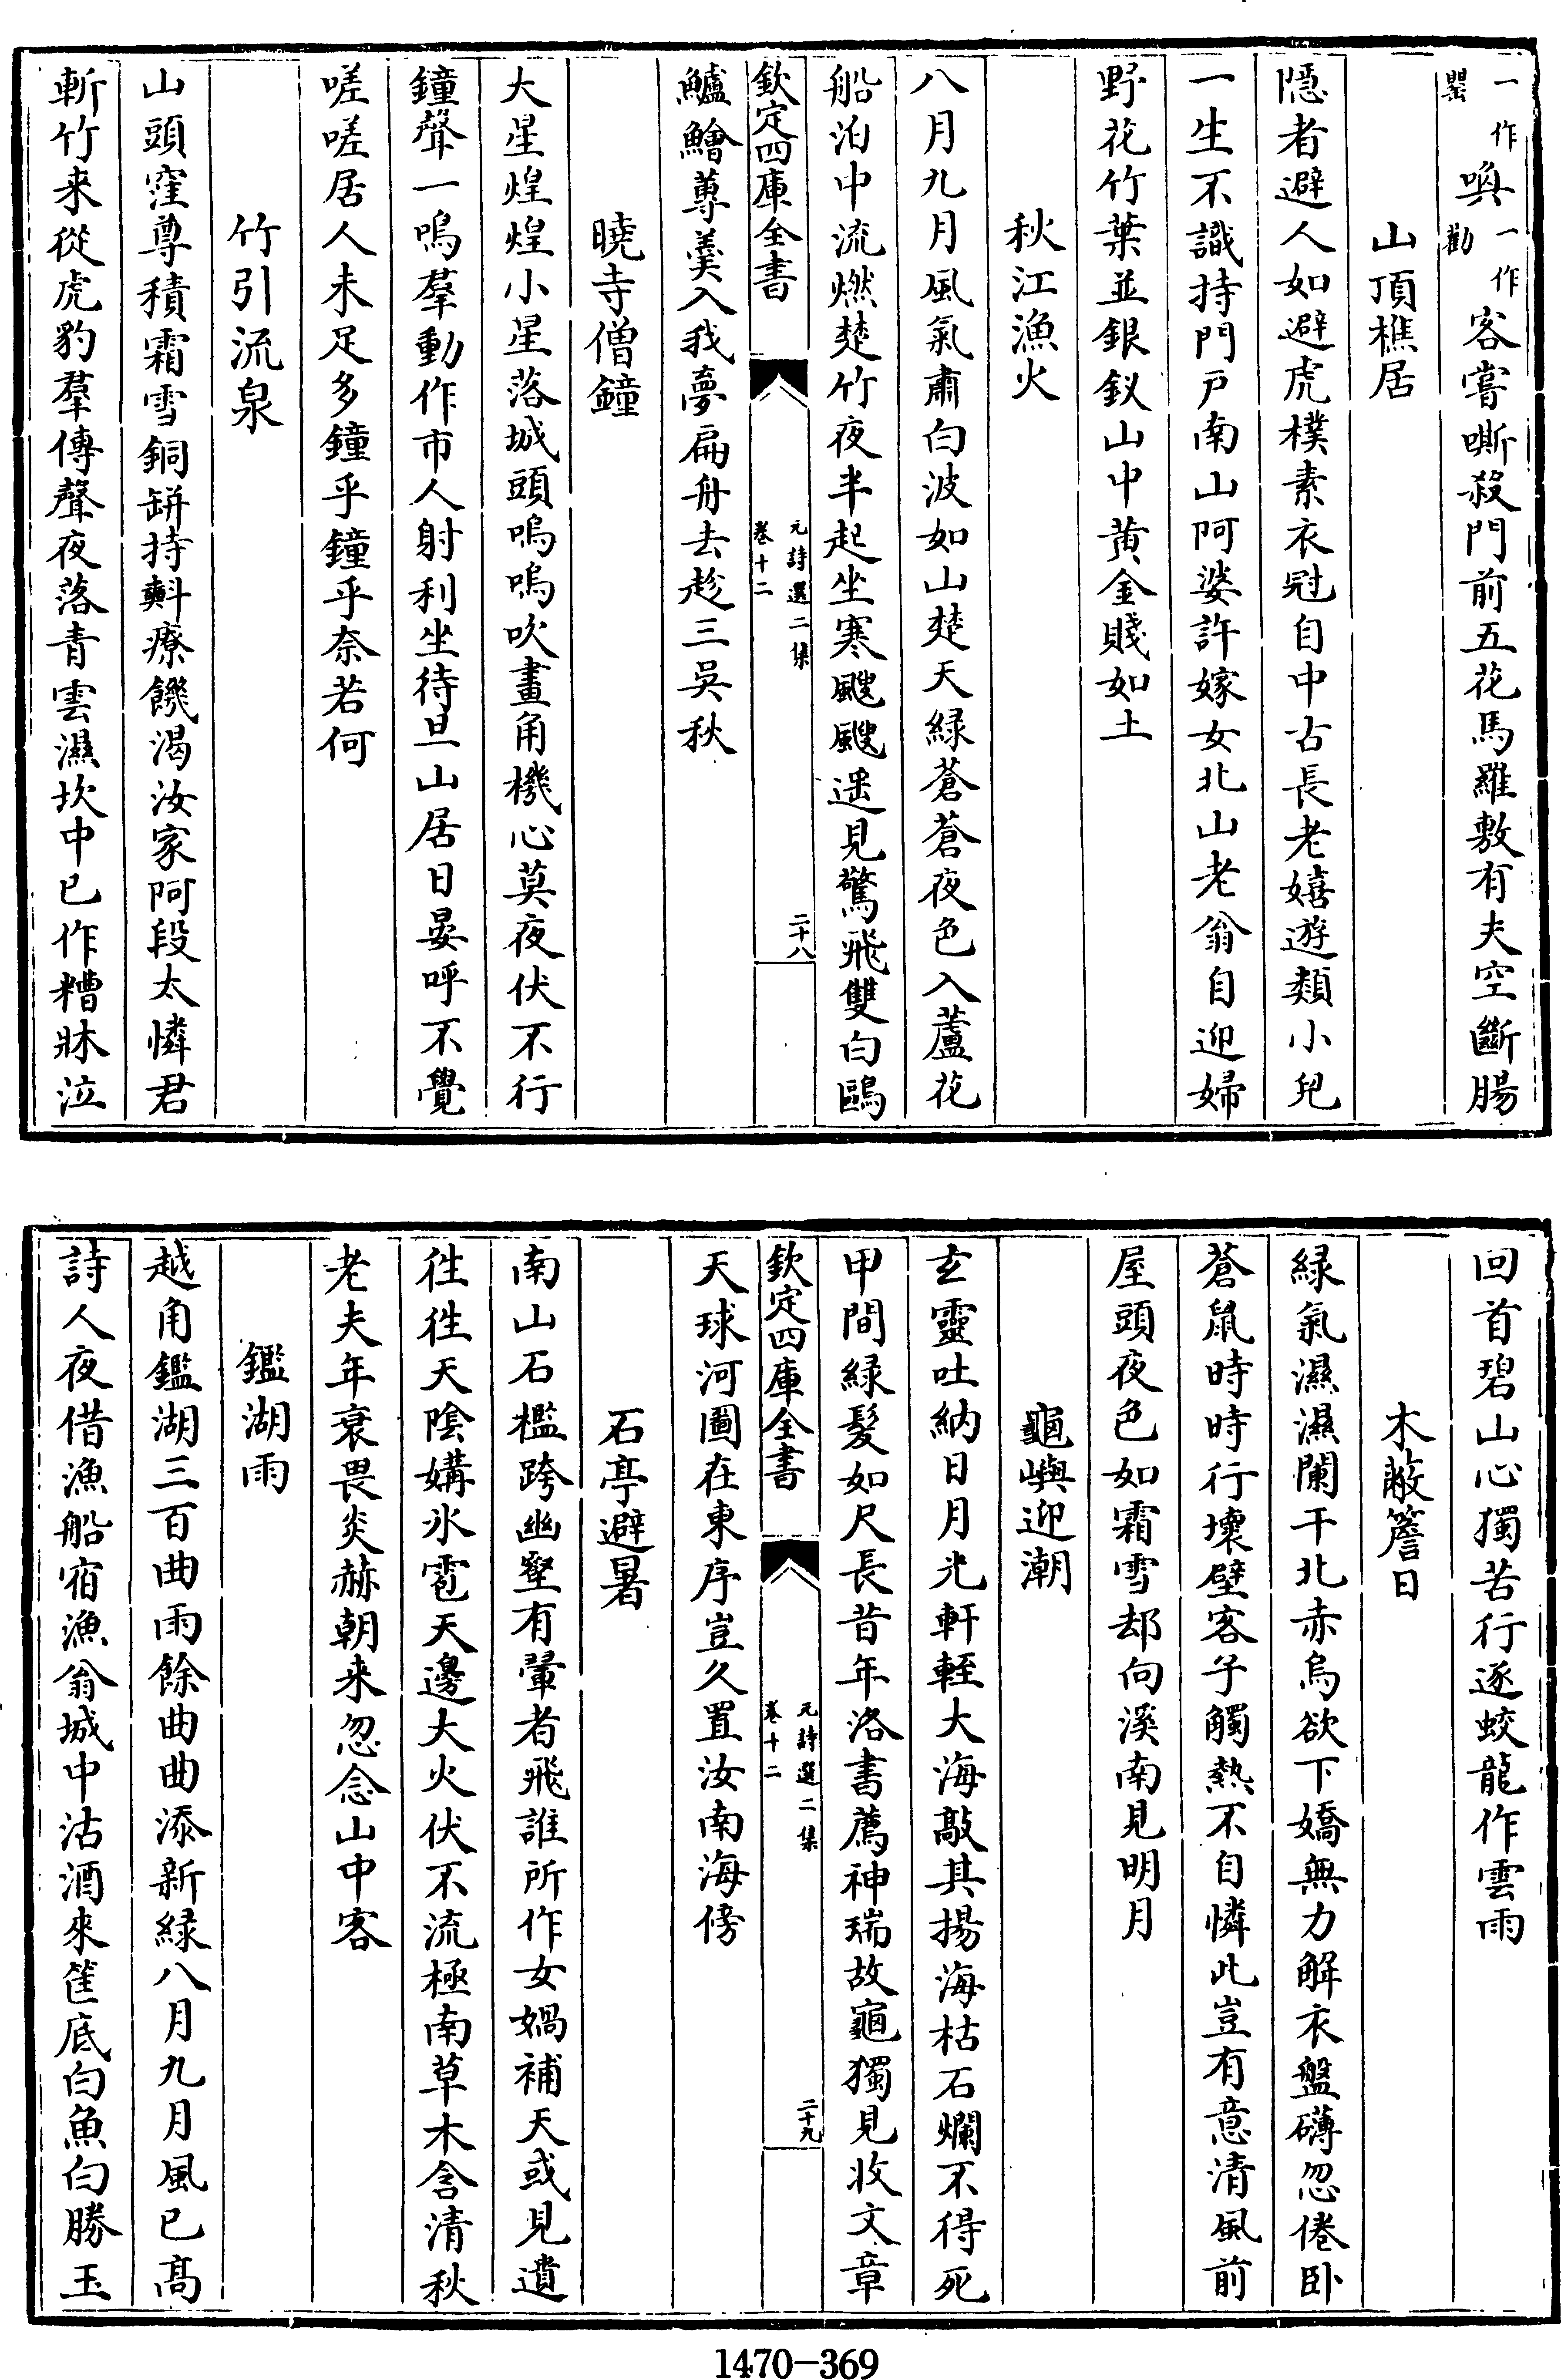 一作罌喚一作勸客嘗嘶殺門前五花馬羅敷有夫空斷腸
山頂樵居
隠者避人如避虎樸素衣冠自中古長老嬉遊類小兒
一生不識持門戸南山阿婆許嫁女北山老翁自迎婦
野花竹葉並銀釵山中黄金賤如土
秋江漁火
八月九月風氣肅白波如山楚天緑蒼蒼夜色入蘆花
船泊中流燃楚竹夜半起坐寒颼颼遥見驚飛雙白鷗
欽定四庫全書
元詩選二集
卷十二
二十八
鱸鱠蓴羹入我夢扁舟去趁三吳秋
曉寺僧鐘
大星煌煌小星落城頭嗚嗚吹畫角機心莫夜伏不行
鐘聲一鳴羣動作市人射利坐待旦山居日晏呼不覺
嗟嗟居人未足多鐘乎鐘乎奈若何
竹引流泉
山頭窪尊積霜雪銅缾持㪺療饑渴汝家阿段太憐君
斬竹来從虎豹羣傳聲夜落青雲濕坎中已作糟牀泣
回首碧山心獨苦行逐蛟龍作雲雨
木蔽簷日
緑氣濕濕闌干北赤烏欲下嬌無力解衣盤礴忽倦卧
蒼鼠時時行壊壁客子觸熱不自憐此豈有意清風前
屋頭夜色如霜雪却向溪南見明月
龜嶼迎潮
玄靈吐納日月光軒輊大海敲其揚海枯石爛不得死
甲間緑髮如尺長昔年洛書薦神瑞故龜獨見收文章
欽定四庫全書
元詩選二集
卷十二
二十九
天球河圖在東序豈久置汝南海傍
石亭避暑
南山石檻跨幽壑有翬者飛誰所作女媧補天或見遺
徃徃天陰媾氷雹天邊大火伏不流極南草木含清秋
老夫年衰畏炎赫朝来忽念山中客
鑑湖雨
越角鑑湖三百曲雨餘曲曲添新緑八月九月風已髙
詩人夜借漁船宿漁翁城中沽酒來筐底白魚白勝玉
1470-369